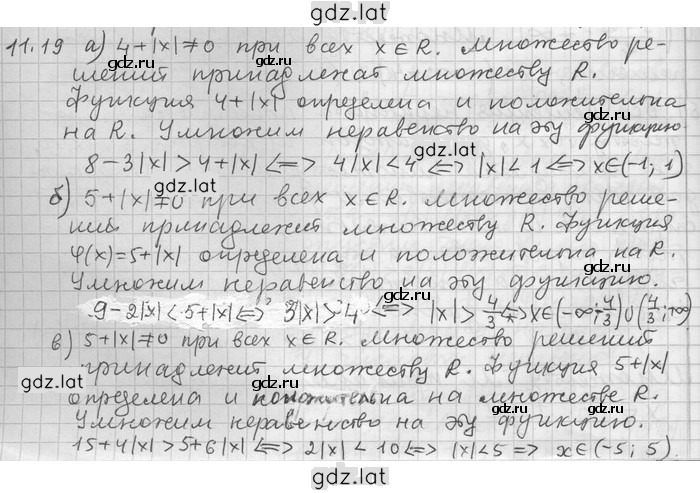 gdz.latr
11.19 а) 4+|x|≠0 при всех x∈R. Множество ре-
шений принадлежат множеству R.
gdz.latr
Функция 4+|x| определена и положительна
на R. Умножим неравенство на эту функцию
8-3|x|>4+|x| <=> 4|x|<4 <=> |x|<1 <=> x∈(-1; 1)
б) 5+|x|≠0 при всех x∈R. Множество реше-
ний принадлежит множеству R. Функция
φ(x)=5+|x| определена и положительна на R.
Умножим неравенство на эту функцию.
9-2|x|<5+|x| <=> 3|x|>4 <=> |x|>4/3 <=> x∈(-∞;-4/3)∪(4/3;+∞)
в) 5+|x|≠0 при всех x∈R. Множество решений
принадлежит множеству R. Функция 5+|x|
gdz.latr
определена и положительна на множестве R.
Умножим неравенство на эту функцию.
15+4|x|>5+6|x| <=> 2|x|<10 <=> |x|<5 => x∈(-5; 5).
gdz.latr